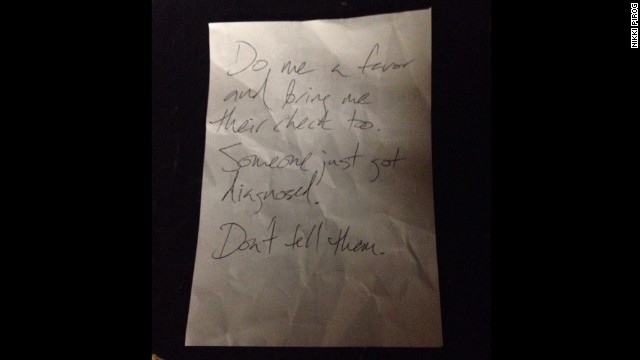 Do me a favor
and bring me
their check too.
Someone just got
diagnosed.
Don't tell them.
NIKKI PIROE